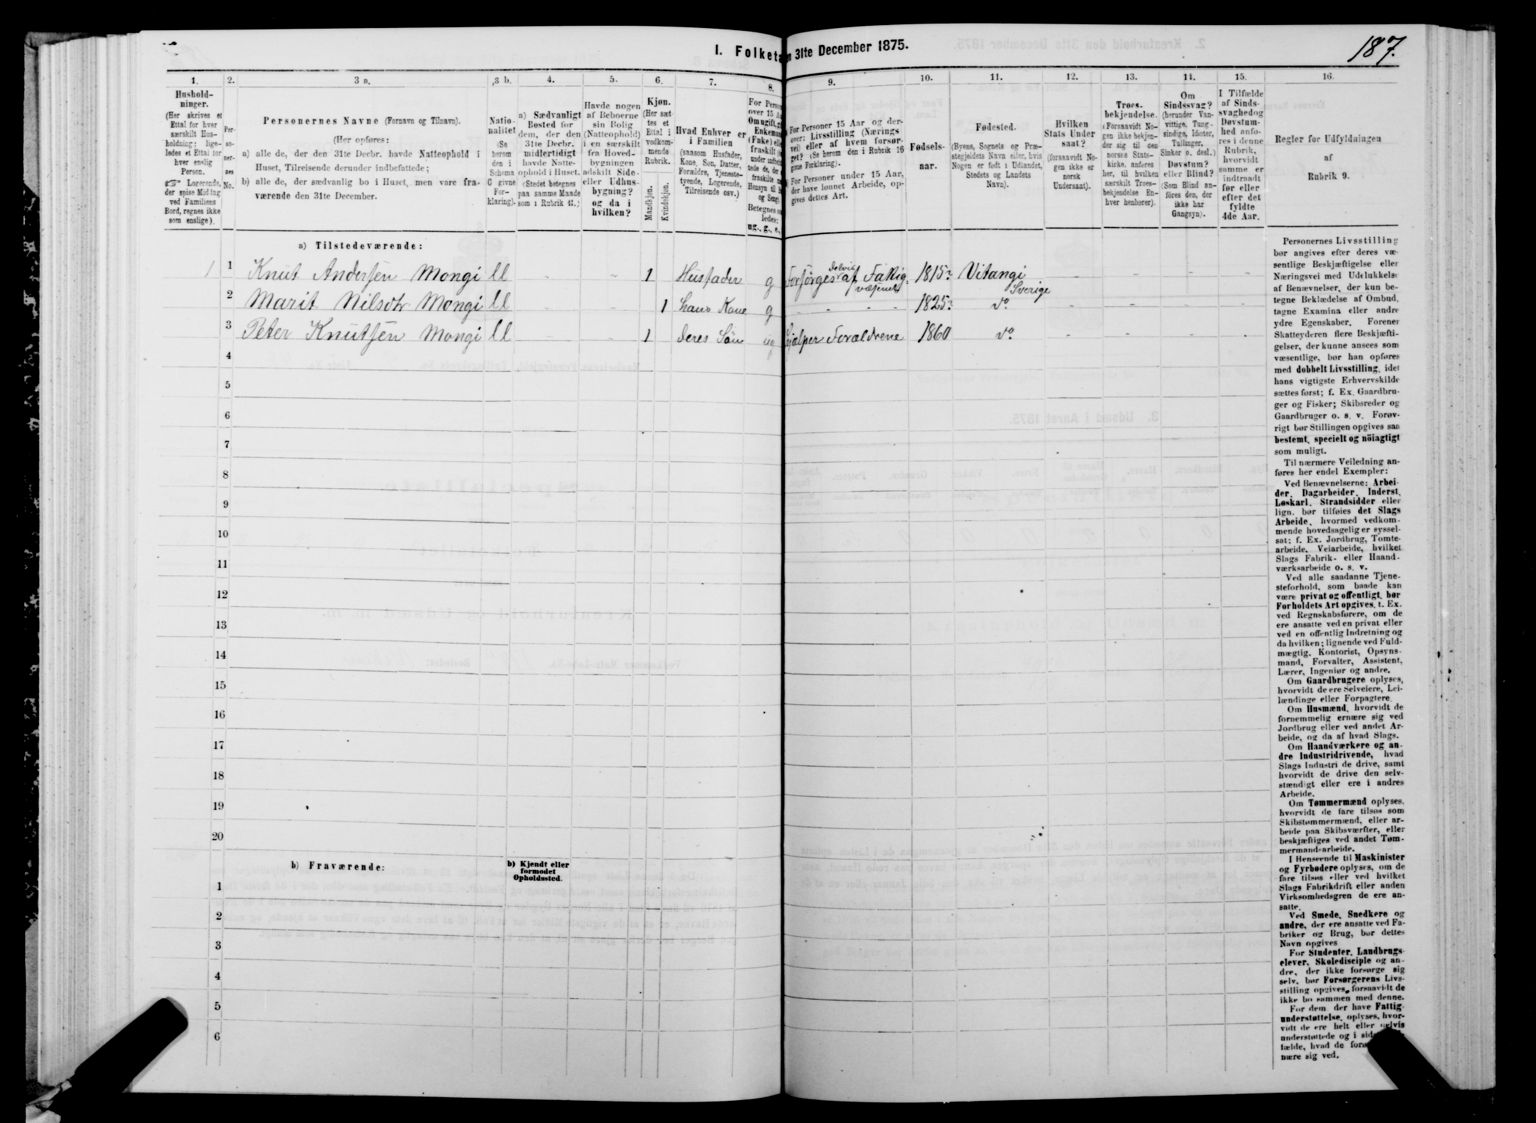 187.
I. Folketa n 31te December 1875.
1.
2.
3 a.
3 b.
4.
5.
6.
7.
8.
9.
10.
11.
12.
13.
14.
15.
16.
Hushold-
ninger.
(Her skrives et
Ettal for hver
særskilt Hus-
holdning; lige-
ledes et Ettal for
hver enslig
Person.
☞ Logerende,
der spise Middag
ved Familiens
Bord, regnes ikke
som enslige).
Per-
so-
ner-
nes
No.
Personernes Navne (Fornavn og Tilnavn).
(Her opføres:
a) alle de, der den 31te Decbr. havde Natteophold i
Huset, Tilreisende derunder indbefattede;
b) alle de, der sædvanlig bo i Huset, men vare fra-
værende den 31te December.
Natio-
nalitet
(Se
herom
den i
Schema
C givne
For-
klaring).
a) Sædvanligt
Bosted for
dem, der den
31te Decbr.
midlertidigt
havde Natte-
ophold i Huset.
(Stedet betegnes
paa samme Maade
som i Rubrik 11.)
Havde nogen
af Beboerne
sin Bolig
(Natteophold)
i en særskilt
fra Hoved-
bygningen
adskilt Side-
eller Udhus-
bygning?
og da i
hvilken?
Kjøn.
(Her sæt-
tes et
Ettal i
vedkom-
mende
Rubrik.
Mandkjøn.
Kvindekjøn.
Hvad Enhver er
i Familien
(saasom Husfader,
Kone, Søn, Datter,
Forældre, Tjeneste-
tyende, Logerende,
Tilreisende osv.)
For Person
over 15 Aa
Om ugift, g
Enkeman
(Enke) elle
fraskilt
Betegnes
ledes:
ug., g., e.,
For Personer 15 Aar og der-
over: Livsstilling (Nærings
vei) eller af hvem forsør-
get? (Se herom den i Rubrik 16
givne Forklaring).
For Personer under 15 Aar,
der have lønnet Arbeide, op-
gives dettes Art.
Fødsels-
aar.
Fødested.
(Byens, Sognets og Præ-
stegjeldets Navn eller, hvis
Nogen er født i Udlandet,
Stedets og Landets
Navn).
Hvilken
Stats Under
saat?
(forsaavidt No-
gen ikke er
norsk
Undersaat).
Troes-
bekjendelse.
(Forsaavidt No-
gen ikke bekjen-
der sig til den
norske Stats-
kirke, anføres
her, til hvilken
særskilt Troes-
bekjendelse En-
hver henhører).
Om
Sindssvag?
(herunder Van-
vittige, Tung-
sindige, Idioter,
Tallinger,
Sinker o. desl.)
Døvstum?
eller Blind?
(Som Blind an-
føres den, der
ikke har
Gangsyn).
I Tilfælde
af Sinds-
svaghedog
Døvstum-
hed anfø-
res i denne
Rubrik,
hvorvidt
samme er
indtraadt
før eller
efter det
fyldte
4de Aar.
Regler for Udfyldningen
af
Rubrik 9.
a) Tilstedeværende:
1 1 Knut Andersen Mongi ll - - 1 Husfader g Forsørges delvis af Fattigvæsenet 1815 Vitangi Sverige - - - -
2 Marit Nilsdtr Mongi ll 1 hans Kone g - - - - 1825 do - - - -
3 Peter Knutsen Mongi ll - - 1 deres Søn ug hjælper Forældrene 1860 do - - - -
4
5
6
7
8
9
10
11
12
13
14
15
16
17
18
19
20
b) Fraværende:
b) Kjendt eller
formodet
Opholdssted.
1
2
3
4
5
6
Personernes Livsstilling
bør angives efter deres væ-
sentlige Beskjæftigelse eller
Næringsvei med Udelukkelse
af Benævnelser, der kun be-
tegne Beklædelse af Ombud,
tagne Examina eller andre
ydre Egenskaber. Forener
Skatteyderen flere Beskjæfti-
gelser, der kunne ansees som
væsentlige, bør han opføres
med dobbelt Livsstilling, idet
hans vigtigste Erhvervskilde
sættes først; f. Ex. Gaardbru-
ger og Fisker; Skibsreder og
Gaardbruger o. s. v. Forøv-
rigt bør Stillingen opgives saa
bestemt, specielt og nøiagtigt
som muligt.
Til nærmere Veiledning an-
føres her endel Exempler:
Ved Benævnelserne: Arbei-
der, Dagarbeider, Inderst,
Løskarl, Strandsidder eller
lign. bør tilføies det Slags
Arbeide, hvormed vedkom-
mende hovedsagelig er syssel-
sat; f. Ex. Jordbrug, Tomte-
arbeide, Veiarbeide, hvilket
Slags Fabrik- eller Haand-
værksarbeide o. s. v.
Ved alle saadanne Tjene-
steforhold, som baade kan
være privat og offentligt, bør
Forholdets Art opgives, t. Ex.
ved Regnskabsførere, om de
ere ansatte ved en privat eller
ved en offentlig Indretning og
da hvilken; lignende ved Fuld-
mægtig, Kontorist, Opsyns-
mand, Forvalter, Assistent,
Lærer, Ingeniør og andre.
Om Gaardbrugere oplyses,
hvorvidt de ere Selveiere, Lei-
lændinge eller Forpagtere.
Om Husmænd, hvorvidt de
fornemmelig ernære sig ved
Jordbrug eller ved andet Ar-
beide, og da af hvad Slags.
Om Haandværkere og an-
dre Industridrivende, hvad
Slags Industri de drive, samt
hvorvidt de drive den selv-
stændigt eller ere i andres
Arbeide.
Om Tømmermænd oplyses,
hvorvidt de fare tilsøs som
Skibstømmermænd, eller ar-
beide paa Skibsværfter, eller
beskjæftiges ved andet Tøm-
mermandsarbeide.
I Henseende til Maskinister
og Fyrbødere oplyses, om de
fare tilsøs eller ved hvilket
Slags Fabrikdrift eller anden
Virksomhedsgren de ere an-
satte.
Ved Smede, Snedkere og
andre, der ere ansatte ved Fa-
briker og Brug, bør dettes
Navn opgives
For Studenter, Landbrugs-
elever, Skoledisciple og an-
dre, der ikke forsørge sig
selv, bør Forsørgerens Livs-
stilling opgives, forsaavidt de
ikke bo sammen med denne.
For dem der have Fattig-
understøttelse, oplyses, hvor-
vidt de ere helt eller delvis
understøttede og i sid
fælde, hvad de for
nære sig ved.